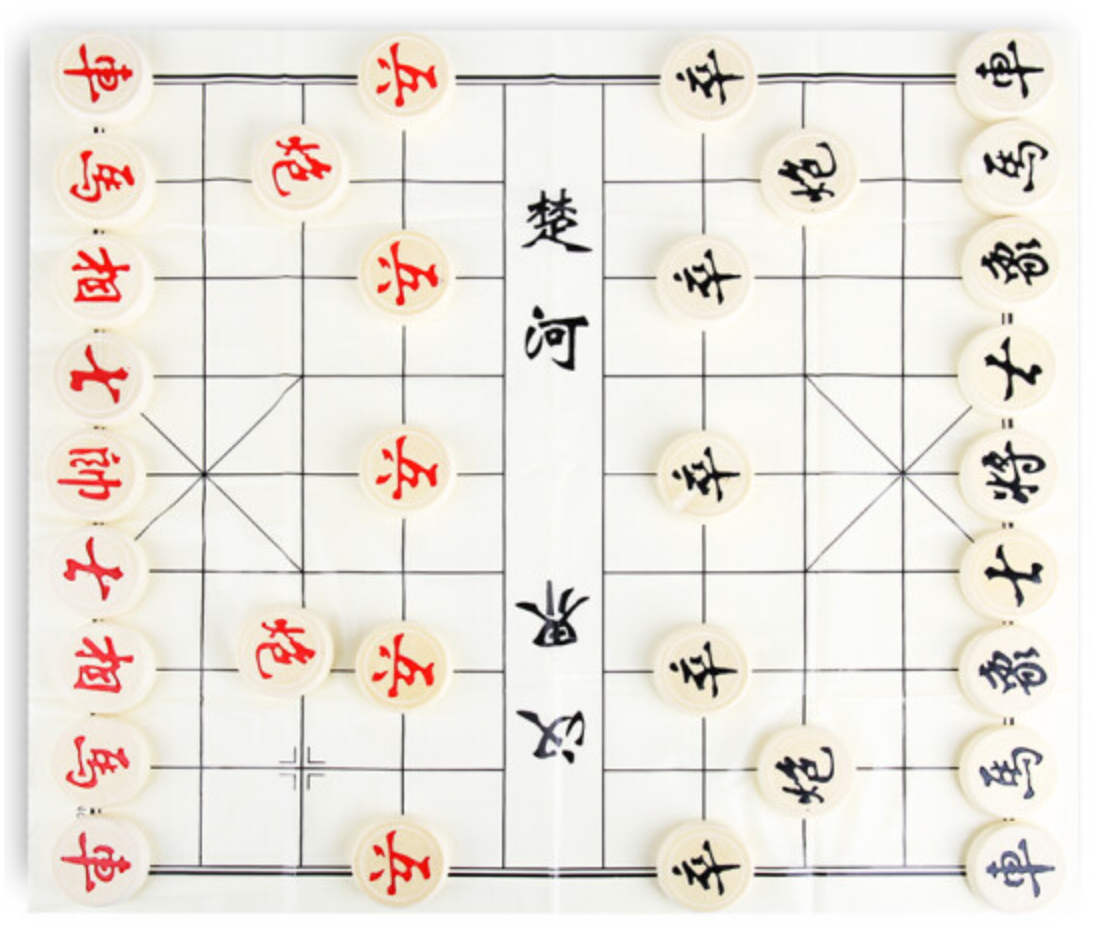 車馬相士帥士相馬車
炮炮
兵兵兵兵兵
楚河
汉界
卒卒卒卒卒
炮炮
車馬象士将士象馬車